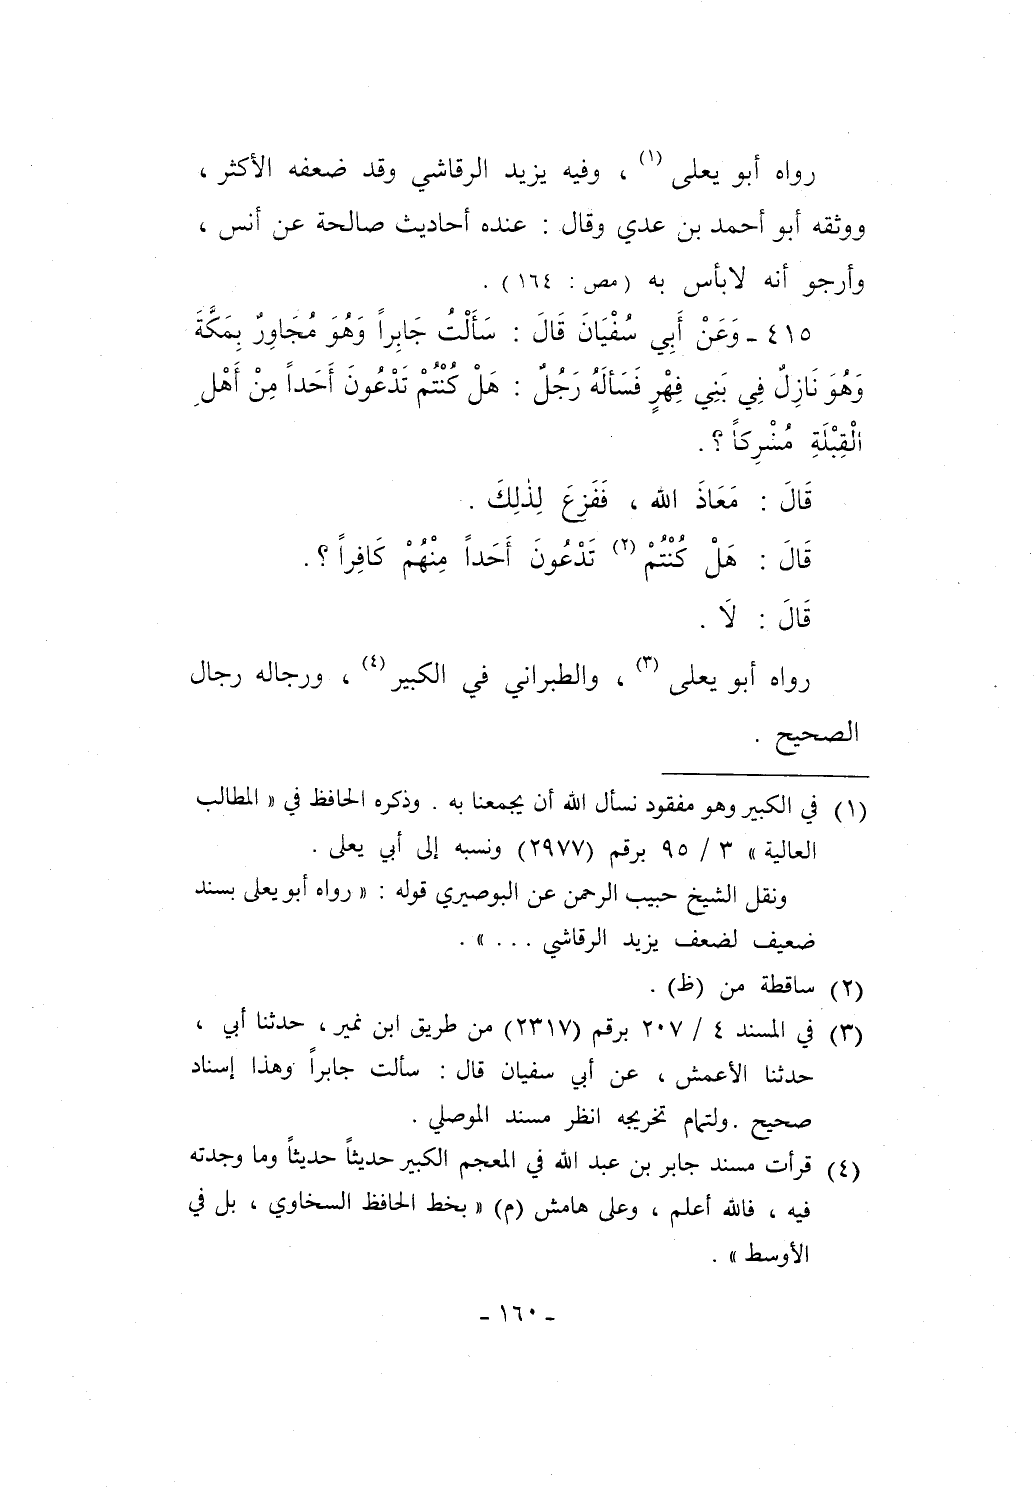 رواه أبو يعلى (١) ، وفيه يزيد الرقاشي وقد ضعفه الأكثر ،
ووثقه أبو أحمد بن عدي وقال : عنده أحاديث صالحة عن أنس ،
وأرجو أنه لابأس به ( مص : ١٦٤ ) .
٤١٥ - وَعَنْ أَبِي سُفْيَانَ قَالَ : سَأَلْتُ جَابِراً وَهُوَ مُجَاوِرٌ بِمَكَّةَ
وَهُوَ نَازِلٌ فِي بَنِي فِهْرٍ فَسَألَهُ رَجُلٌ : هَلْ كُنْتُمْ تَدْعُونَ أَحَداً مِنْ أَهْلِ
الْقِبْلَةِ مُشْرِكاً ؟ .
قَالَ : مَعَاذَ الله ، فَفَزِعَ لِذٰلِكَ .
قَالَ : هَلْ كُنْتُمْ (٢) تَدْعُونَ أَحَداً مِنْهُمْ كَافِراً ؟ .
قَالَ : لَا .
رواه أبو يعلى (٣) ، والطبراني في الكبير (٤) ، ورجاله رجال
الصحيح .
(١) في الكبير وهو مفقود نسأل الله أن يجمعنا به . وذكره الحافظ في « المطالب
العالية » ٣ / ٩٥ برقم (٢٩٧٧) ونسبه إلى أبي يعلى .
ونقل الشيخ حبيب الرحمن عن البوصيري قوله : « رواه أبو يعلى بسند
ضعيف لضعف يزيد الرقاشي ... » .
(٢) ساقطة من (ظ) .
(٣) في المسند ٤ / ٢٠٧ برقم (٢٣١٧) من طريق ابن نمير ، حدثنا أبي ،
حدثنا الأعمش ، عن أبي سفيان قال : سألت جابراً وهذا إسناد
صحيح . ولتمام تخريجه انظر مسند الموصلي .
(٤) قرأت مسند جابر بن عبد الله في المعجم الكبير حديثاً حديثاً وما وجدته
فيه ، فالله أعلم ، وعلى هامش (م) « بخط الحافظ السخاوي ، بل في
الأوسط » .
- ١٦٠ -